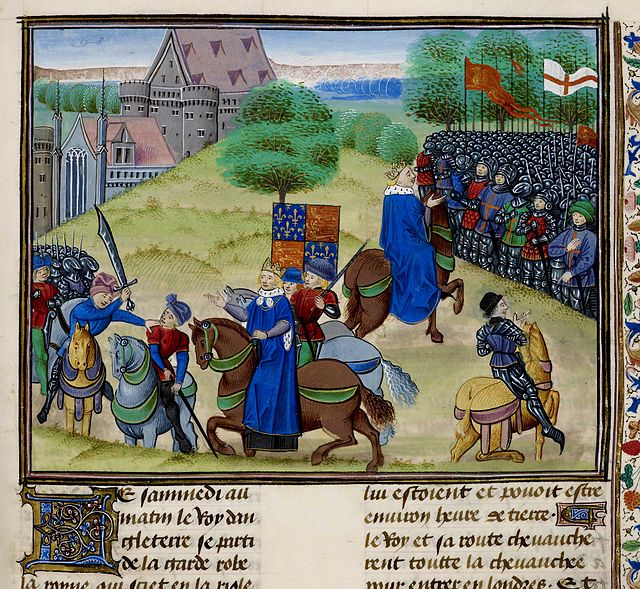 Le samnedi au
matin le Roy dan
gleterre se parti
de la garde robe
la royne qui siet en la riole
lui estoient et pouoit estre
environ heure de tierce.
le Roy et sa route chevauche
rent toutte la chevauchee
pour entrer en londres. Et